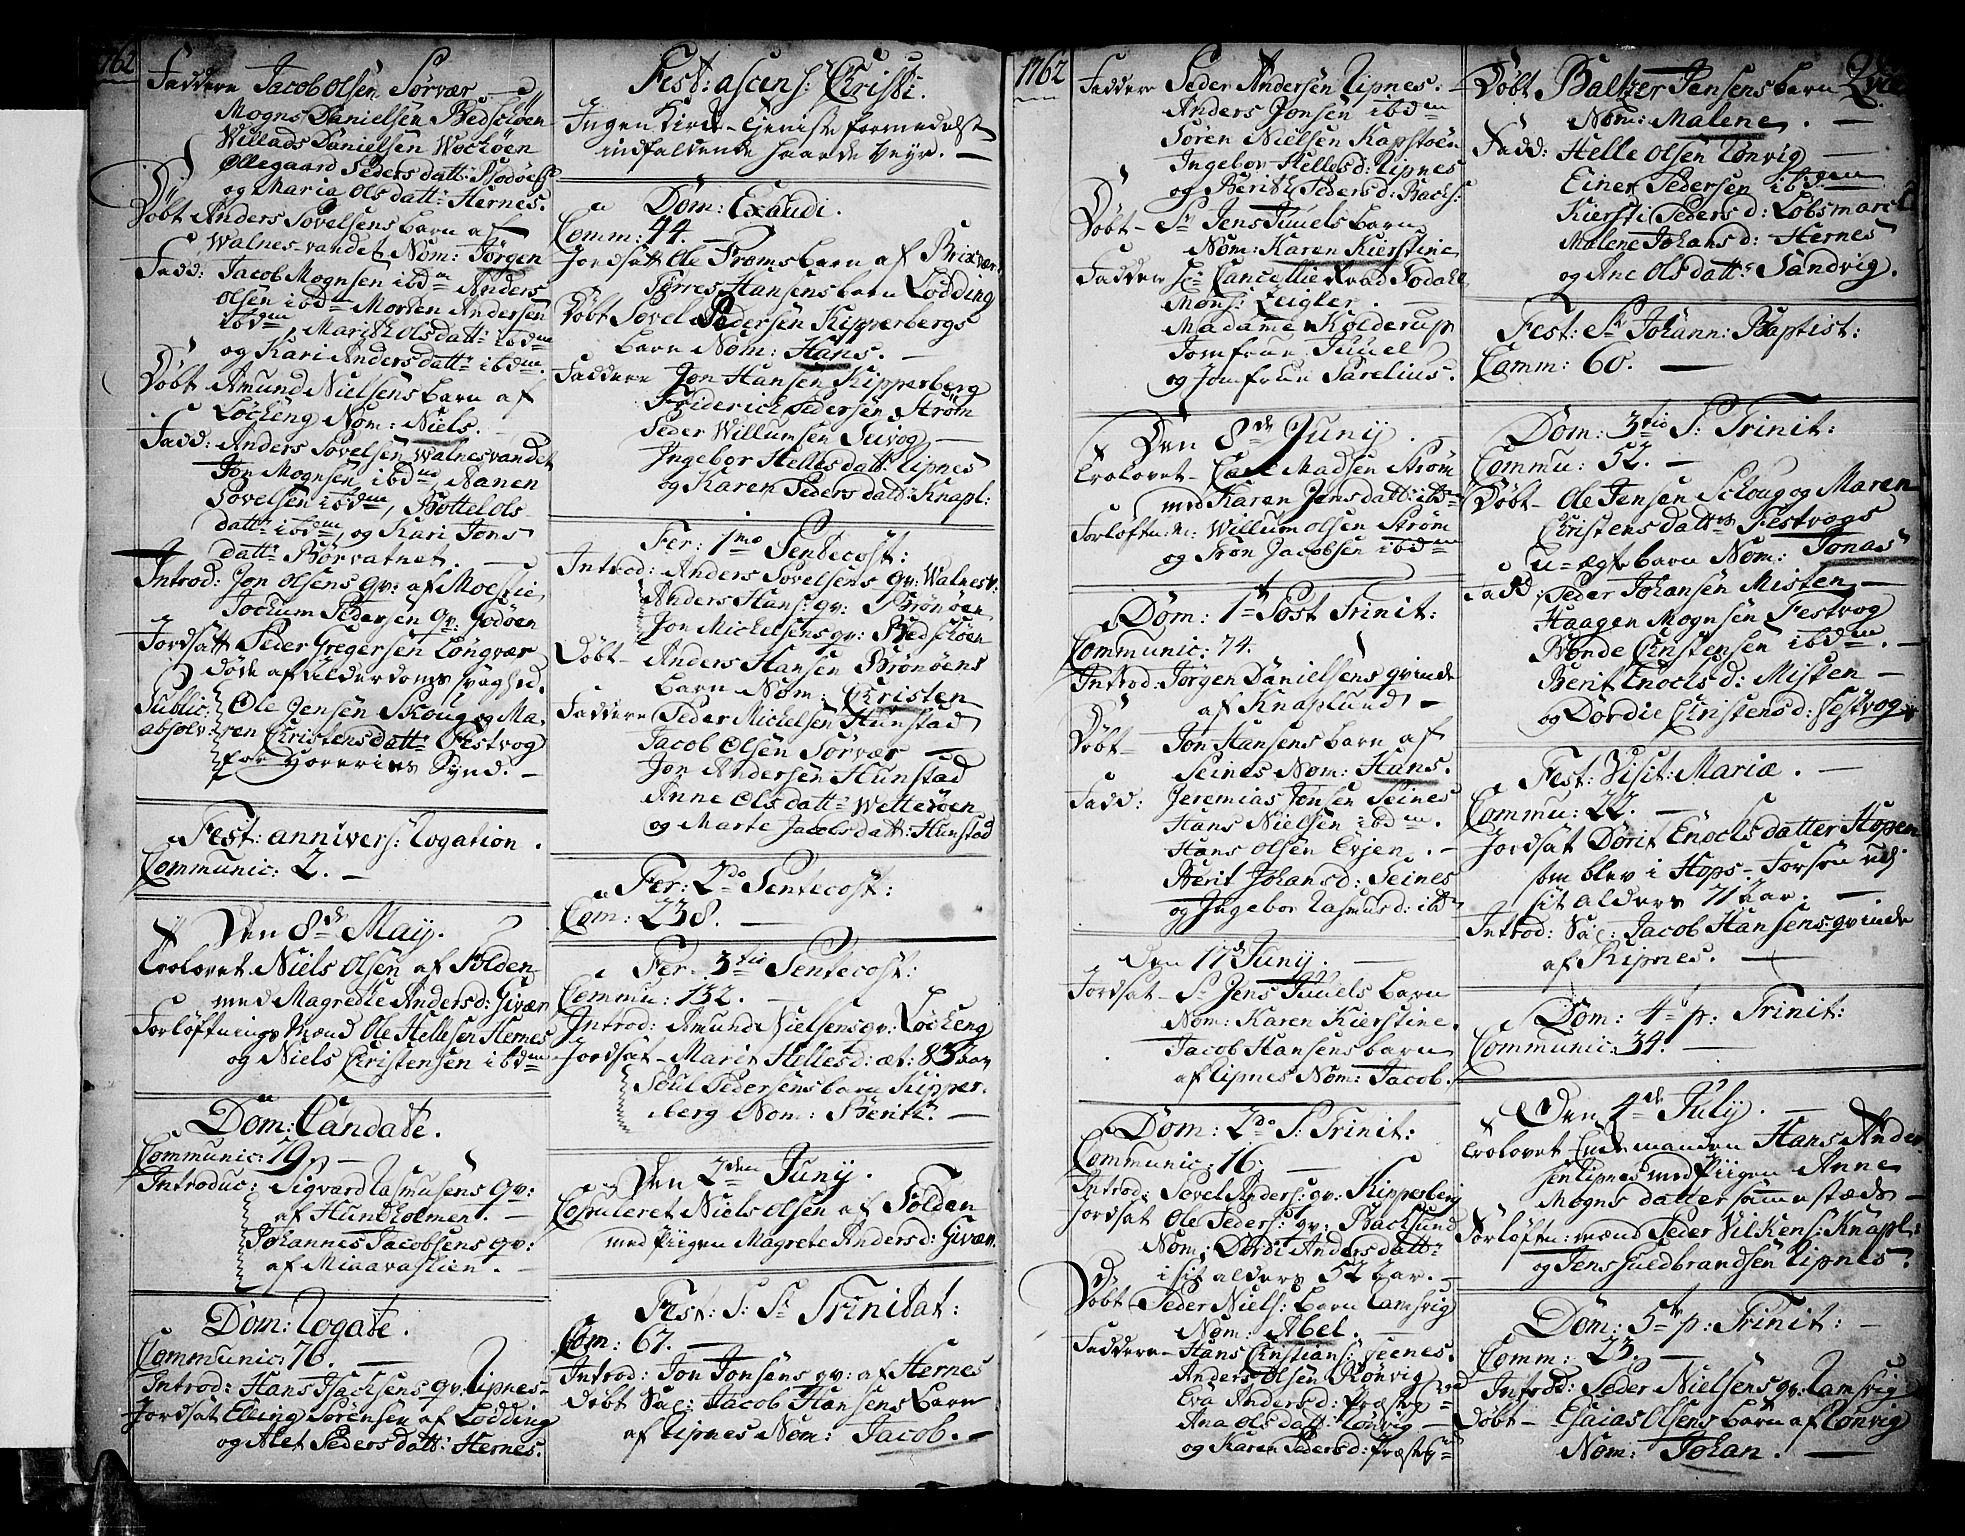 1762
Faddere Jacob Olsen Sørvær
Mogns Danielsen Bedschøen
Willads Danielsen
Øllegaard Peders datt: Bodøe
og Maria Ols datt: Hernes.
Døbt Anders Sovelsens barn af
Walnes-vandet Nom: Jørgen
Fadd: Jacob Mognsen ibdm Anders
Olsen ibdm Morten Andersen
ibdm, Marith Olsdatt: ibdm
og Kari Andersdatt: ibdm.
Døbt Amund Nielsens barn af
Løcheng Nom: Niels.
Fadd: Anders Sovelsen Walnesvandet
Jon Mognsen ibdm, Nanen
Sovelsen ibdm, Bottel Ols
datt: ibdm, og Kari Jons
datt: Børvatnet.
Introd: Jon Olsens qv: af Moestie
Jochum Pedersen qv: Godøen
Jordsatt Peder Gregersen Løngvær
døde af Alderdoms svaghed.
Public: Ole Jensen Skoug og Ma
absolv: ren Christensdatt: Festvog
for Horeries Synd.
Fest: annivers: Rogation.
Communic: 2.
Den 8de Maij.
Trolovet Niels Olsen af Folden
med Magrete Andersd: Givær
Forløftnings Mænd Ole Hellesen Hernes
og Niels Christensen ibdm
Dom: Cantate.
Communic: 19.
Introduc: Sigvard Rasmusens qv:
af Hundholmen.
Johannes Jacobsens qv:
af
Dom: Rogate.
Communic: 76.
Introd: Hans Isachsens qv: Ripnes
Jordsat Elling Sørensen af Lødding
og Alet Peders datt: Hernes.
Fest: ascens: Christi.
Ingen Kirke-tieniste formedelst
indfaldende haarde Veyr.
Dom: Exaudi.
Comm: 44.
Jordsatt Ole Froms barn af
Torres Hansens barn Lødding
Døbt Sovel Pedersen Kipperbergs
barn Nom: Hans.
Faddere Jon Hansen Kipperberg
Friderich Pedersen Strøm
Peder Willumsen Seivog
Ingebor Hellesdatt: Ripnes
og Karen Peders datt: Knapl:
Fer: 1mo Pentecost:
Introd: Anders Sovelsens qv: Walnesv:
Anders Hans: qv: Brønøen
Jon Michelsens qv: Bedschøen
Døbt Anders Hansen Brønøens
barn Nom: Christen
Faddere Peder Michelsen Hunstad
Jacob Olsen Sørvær
Jon Andersen Hunstad
Anne Olsdatt: Wetterøen
og Marte Jacobsdatt: Hunstad
Fer: 2do Pentecost:
Com: 238.
Fer. 3tio Pentecost:
Commu: 132.
Introd: Amund Nielsens qv: Løcheng
Jordsat Marit Hellesd: æt: 83 aar
Poul Pedersens barn Kipper-
berg Nom: Bente.
Den 2den Junij.
Copuleret Niels Olsen af Folden
med Piigen Magrete Andersd: Givær.
Fest: S: St Trinitat:
Com: 67.
Introd: Jon Jonsens qv: af Hernes
Døbt Sal: Jacob Hansens barn
af Ripnes Nom: Jacob.
1762
Faddere Peder Andersen Ripnes.
Anders Jonsen ibdm
Søren Nielsen Kapstøen
Ingebor Hellesd: Ripnes
og Berith Pedersd: Bachs:
Døbt Sr Jens Juuels barn
Nom: Karen Kierstine
Faddere Cancellie Raad
Mons:
Madame Kolderup
Jomfrue Juuel
og Jomfrue Parelius.
Den 8de Junij
Trolovet Madsen Strøm
med Karen Jensdatt: ibdm
Forløftn: M: Willum Olsen Strøm
og Jacobsen ibdm
Dom: 1te Post Trinit:
Communic: 74.
Introd: Jørgen Danielsens qvinde
af Knaplund
Døbt Jon Hansens barn af
Seines Nom: Hans.
Fadd: Jeremias Jonsen Seines
Hans Nielsen ibdm.
Hans Olsen Evjen.
Berit Johansd: Seines
og Ingebor Rasmusd: ibdm
den 17de Junij.
Jordsat Sr Jens Juuels barn
Nom: Karen Kierstine.
Jacob Hansens barn
af Ripnes Nom: Jacob.
Dom: 2do P: Trinit:
Communic: 16.
Introd: Sovel Anders: qv: Kipperberg
Jordsat Ole Peders: qv: Bachsund
Nom: Dordi Andersdatt:
i sit alders 52 Aar.
Døbt Peder Niels: barn Ramsvig
Nom: Abel.
Faddere Hans Christians:
Anders Olsen Rønvig
Eva Andersd: Præstegd
Ana Olsdatt: Rønvig
og Karen Pedersd: Præsteg:
Døbt Baltzer Jensens barn
Nom: Malene.
Fadd: Helle Olsen Rønvig
Einer Pedersen ibidem
Kiersti Pedersd: Løbsmarc
Malene Johansd: Hernes
og Ane Olsdatt: Sandvig.
Fest: St Johann: Baptist:
Comm: 60.
Dom: 3tio P: Trinit:
Commu: 52.
Døbt Ole Jensen Schoug og Maren
Christensdatters Festvogs
u-ægte barn Nom: Jonas
Fadd: Peder Johansen Misten
Haagen Mognsen Festvog
Christensen ibdm.
Berit Enochsd: Misten
og Dordie Christensd: Festvog
Fest: Visit: Mariæ.
Commu: 22.
Jordsat Dorit Enochsdatter Hopen
som blev i Hops-Forsen udj
sit alders 71 aar.
Introd: Sal: Jacob Hansens qvinde
af Ripnes.
Dom: 4te p: Trinit:
Communic: 34.
Den 4de July.
Trolovet Enkemanden Hans Ander
sen Ripnes med Piigen Anne
Mogns datter sammesteds
Forløftn: mænd Peder Vilkens: Knapl:
og Jens Huldbrandsen Ripnes.
Dom: 5te p: Trinit:
Comm: 23.
Introd: Peder Nielsens qv: Ramsvig
Døbt Esaias Olsens barn af Rønvig
Nom: Johan.